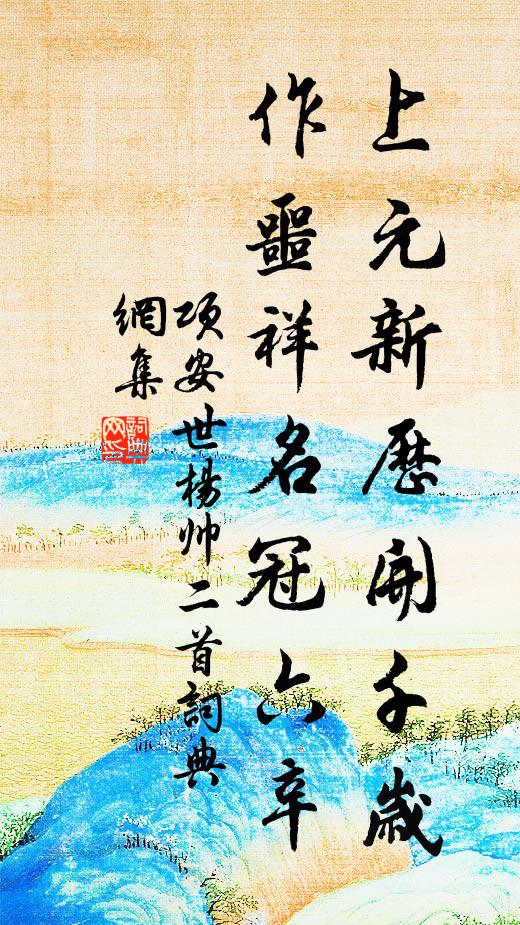 上元新歷開千歲
作噩祥名冠六辛
項安世楊帥二首詞典
網集